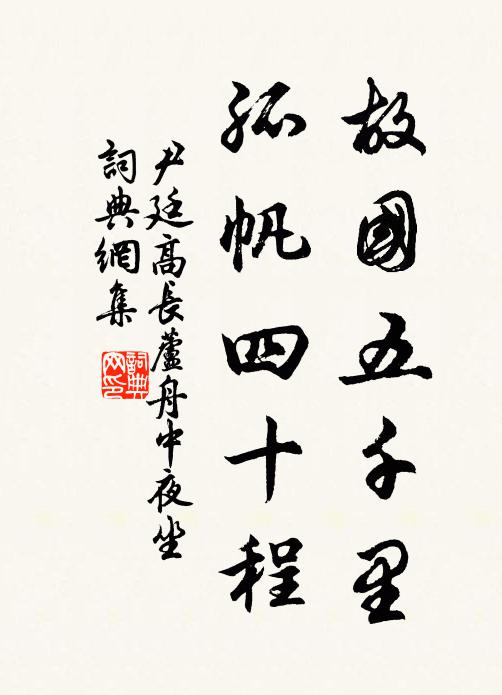 故國五千里
孤帆四十程
尹廷高長蘆舟中夜坐
詞典網集
詞典网印